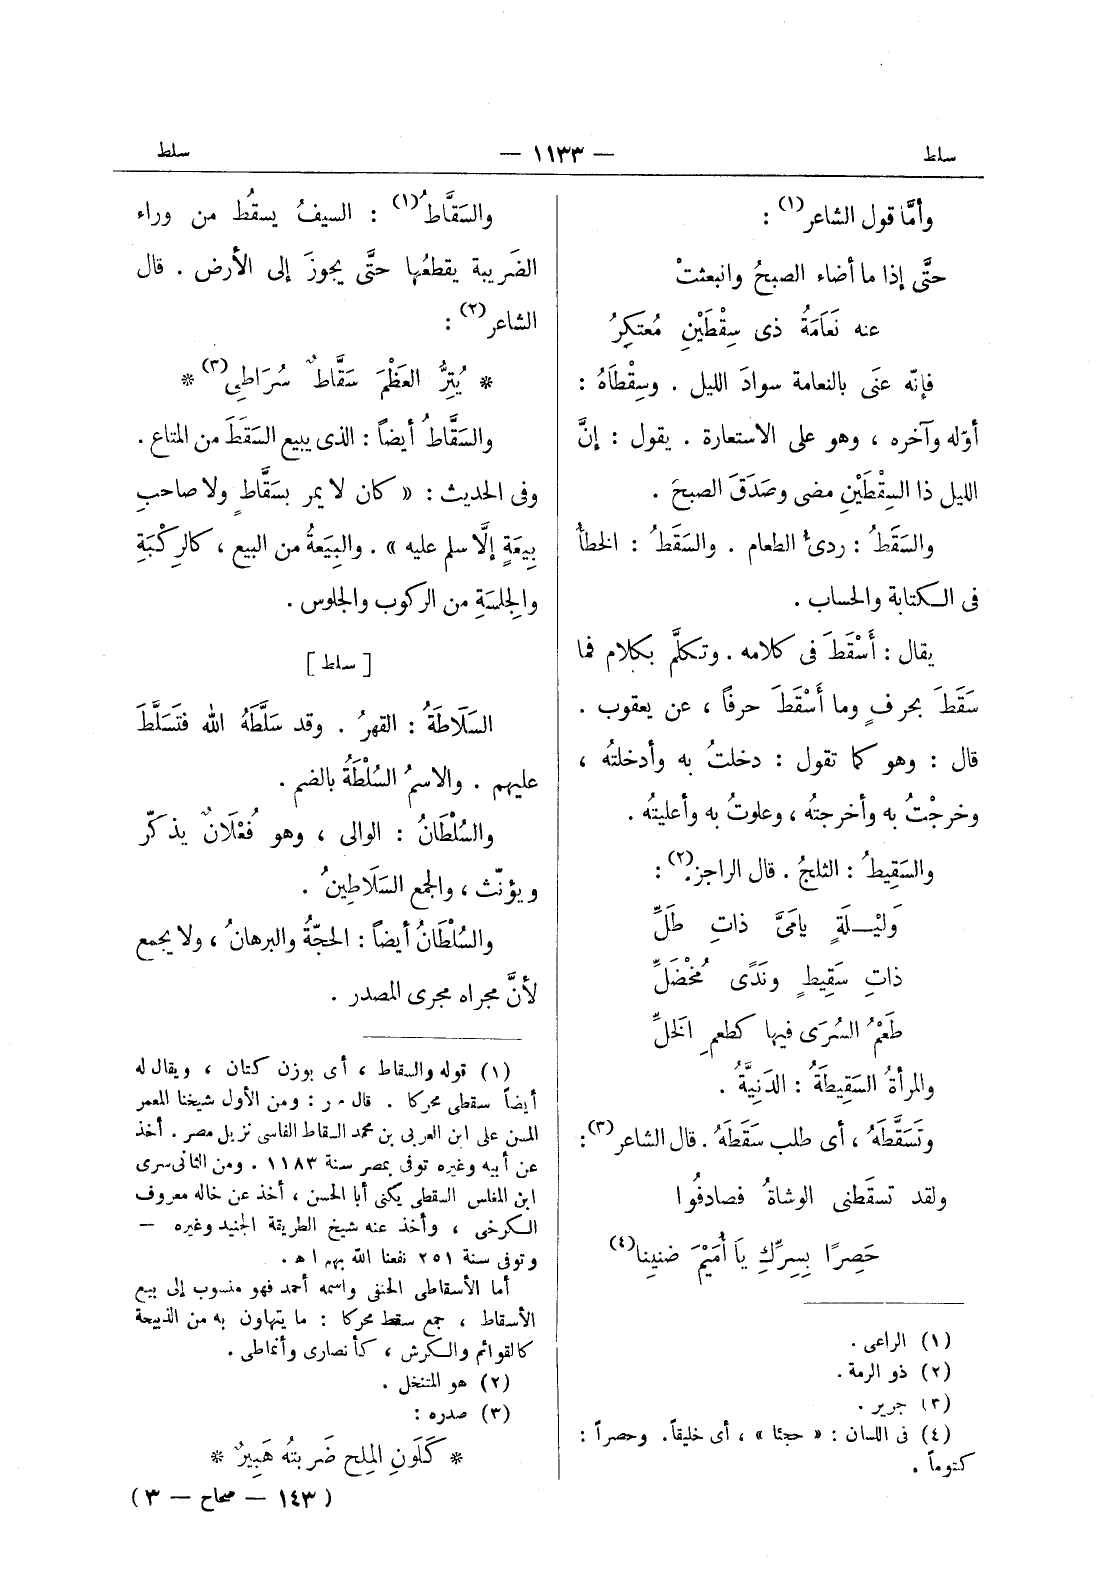 سلط
— ١١٣٣ —
سلط
وأمَّا قول الشاعر(١) :
حتَّى إذا ما أضاء الصبحُ وانبعثتْ
عنه نَعَامَةُ ذى سِقْطَيْنِ مُعتكِرُ
فإنّه عنَى بالنعامة سوادَ الليل . وسِقْطاَهُ :
أوّله وآخره ، وهو على الاستعارة . يقول : إنَّ
الليل ذا السِقْطَيْنِ مضى وصَدَقَ الصبحَ .
والسَقَطُ : ردىءُ الطعام . والسَقَطُ : الخطأُ
فى الكتابة والحساب .
يقال : أَسْقَطَ فى كلامه . وتكلَّم بكلام فما
سَقَطَ بحرفٍ وما أَسْقَطَ حرفاً ، عن يعقوب .
قال : وهو كما تقول : دخلتُ به وأدخلتُه ،
وخرجْتُ به وأخرجتُه ، وعلوتُ به وأعليتُه .
والسَقِيطُ : الثلجُ . قال الراجز(٢) :
وَليْـــلَةٍ يامَىَّ ذاتِ طَلِّ
ذاتِ سَقِيطٍ ونَدًى مُخْضَلِّ
طَعْمُ السُرَى فيها كطعمِ الخَلِّ
والمرأةُ السَقِيطَةُ : الدَنِيَّةُ .
وتَسَقَّطَهُ ، أى طلب سَقَطَهُ . قال الشاعر(٣) :
ولقد تسقَطنى الوشاةُ فصادفُوا
حَصِرًا بِسِرِّكِ يَا أُمَيْمَ ضنينا(٤)
(١) الراعى .
(٢) ذو الرمة .
(٣) جرير .
(٤) فى اللسان : « حجئا » ، أى خليقاً . وحصراً :
كتوماً .
والسَقَّاطُ(١) : السيفُ يسقُط من وراء
الضَريبة يقطعُها حتَّى يجوزَ إلى الأرض . قال
الشاعر(٢) :
* يُتِرُّ العَظْمَ سَقَّاطٌ سُرَاطِى(٣) *
والسَقَّاطُ أيضاً : الذى يبيع السَقَطَ من المتاع .
وفى الحديث : « كان لا يمر بسَقَّاطٍ ولا صاحبِ
بِيعَةٍ إلَّا سلم عليه » . والبِيَعةُ من البيع ، كالرِكْبَةِ
والجِلسَةِ من الركوب والجلوس .
[ سلط ]
السَلَاطَةُ : القهرُ . وقد سَلَّطَهُ الله فتَسَلَّطَ
عليهم . والاسمُ السُلْطَةُ بالضم .
والسُلْطَانُ : الوالى ، وهو فُعْلَانٌ يذكّر
ويؤنّث ، والجمع السَلَاطِينُ .
والسُلْطَانُ أيضاً : الحجّةُ والبرهانُ ، ولا يجمع
لأنَّ مجراه مجرى المصدر .
(١) قوله والسقاط ، أى بوزن كتان ، ويقال له
أيضاً سقطى محركا . قال م ر : ومن الأول شيخنا المعمر
المسن على ابن العربى بن محمد السقاط الفاسى نزيل مصر . أخذ
عن أبيه وغيره توفى بمصر سنة ١١٨٣ . ومن الثانى سرى
ابن المغلس السقطى يكنى أبا الحسن ، أخذ عن خاله معروف
الكرخى ، وأخذ عنه شيخ الطريقة الجنيد وغيره —
وتوفى سنة ٢٥١ نفعنا الله بهم اه .
أما الأسقاطى الحنفى واسمه أحمد فهو منسوب إلى بيع
الأسقاط ، جمع سقط محركا : ما يتهاون به من الذبيحة
كالقوائم والكرش ، كأنصارى وأنماطى .
(٢) هو المتنخل .
(٣) صدره :
* كَلَونِ المِلح ضَربتُه هَبِيرٌ *
( ١٤٣ — صحاح — ٣ )